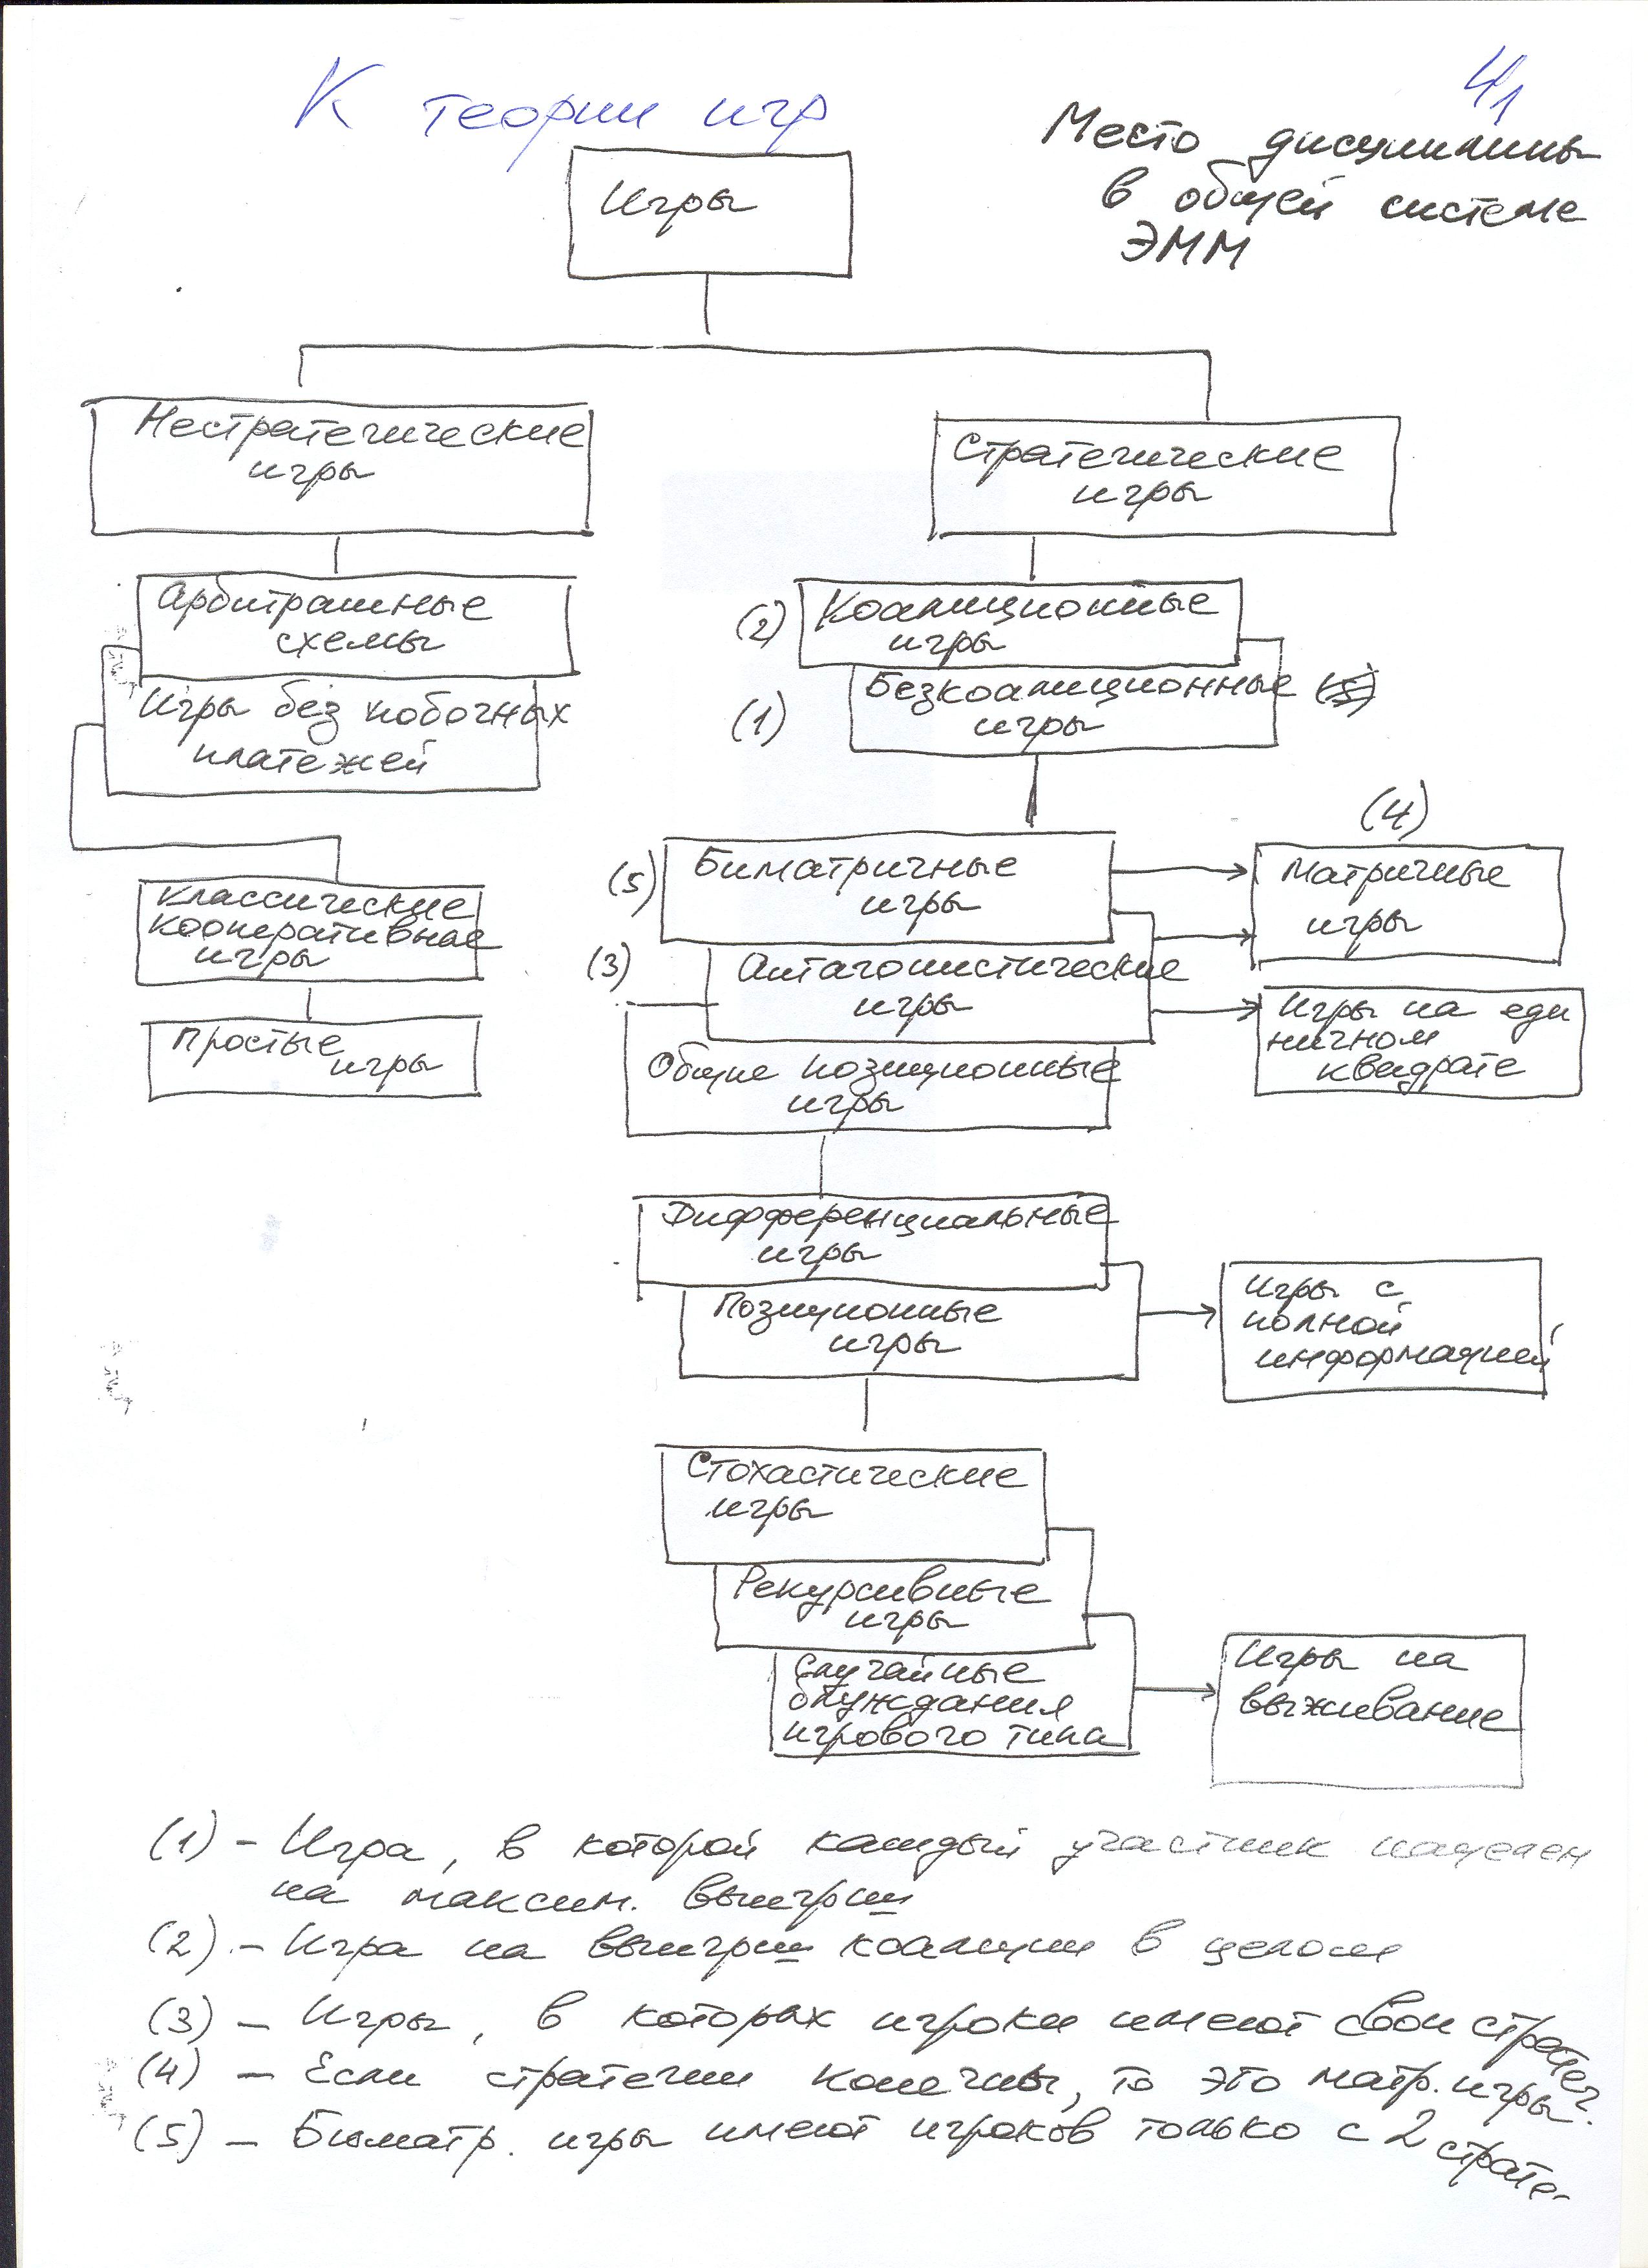 К теории игр
4/1
Место дисциплины
в общей системе
ЭММ
Игры
Нестратегические
игры
Стратегические
игры
Арбитражные
схемы
Игры без побочных
платежей
Классические
кооперативные
игры
Простые
игры
(2) Коалиционные
игры
Безкоалиционные (5)
(1) игры
(5) Биматричные
игры
(4)
Матричные
игры
(3) Антагонистические
игры
Игры на еди
ничном
квадрате
Общие позиционные
игры
Дифференциальные
игры
Позиционные
игры
Игры с
полной
информацией
Стохастические
игры
Рекурсивные
игры
Случайные
блуждания
игрового типа
Игры на
выживание
(1) – Игра, в которой каждый участник нацелен
на максим. выигрыш
(2) – Игра на выигрыш коалиции в целом
(3) – Игры, в которых игроки имеют свои стратег.
(4) – Если стратегии конечны, то это матр. игры.
(5) – Биматр. игры имеют игроков только с 2 страте-